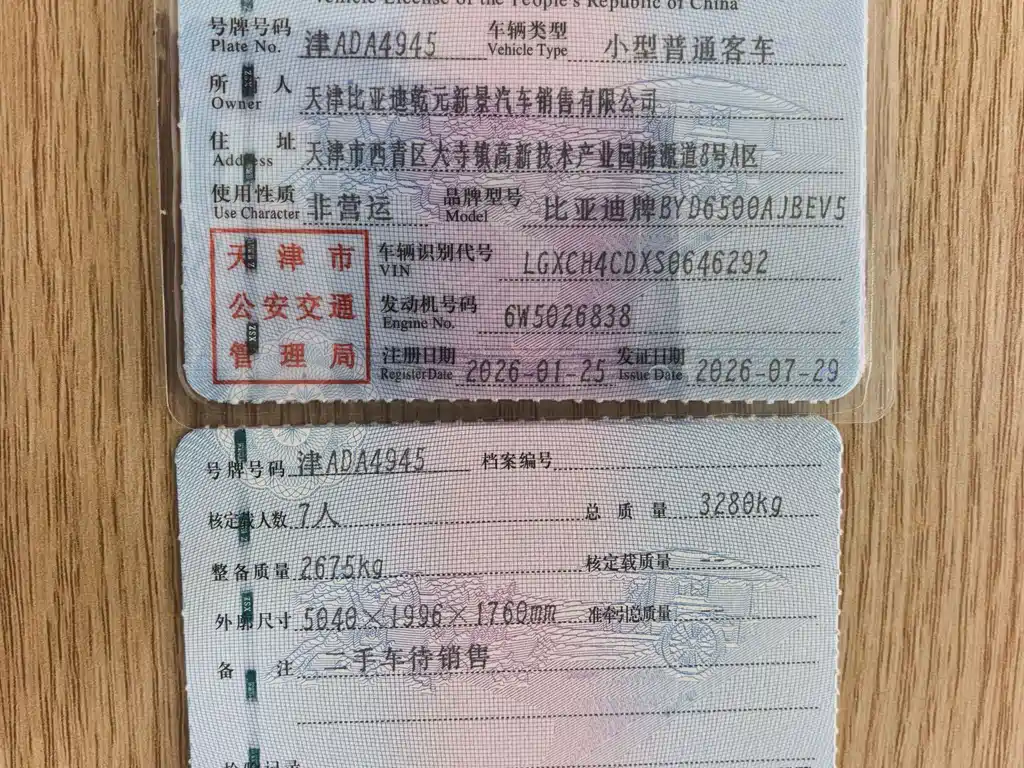 Vehicle License of the People's Republic of China
号牌号码 Plate No. 津ADA4945 车辆类型 Vehicle Type 小型普通客车
所有人 Owner 天津比亚迪乾元新景汽车销售有限公司
住址 Address 天津市西青区大寺镇高新技术产业园储源道8号A区
使用性质 Use Character 非营运 品牌型号 Model 比亚迪牌BYD6500AJBEV5
天津市
公安交通
管理局
车辆识别代号 VIN LGXCH4CDXS0646292
发动机号码 Engine No. 6W5026838
注册日期 Register Date 2026-01-25 发证日期 Issue Date 2026-07-29
号牌号码 津ADA4945 档案编号
核定载人数 7人 总质量 3280kg
整备质量 2675kg 核定载质量 --
外廓尺寸 5040×1996×1760mm 准牵引总质量 --
备注 二手车待销售
检验记录